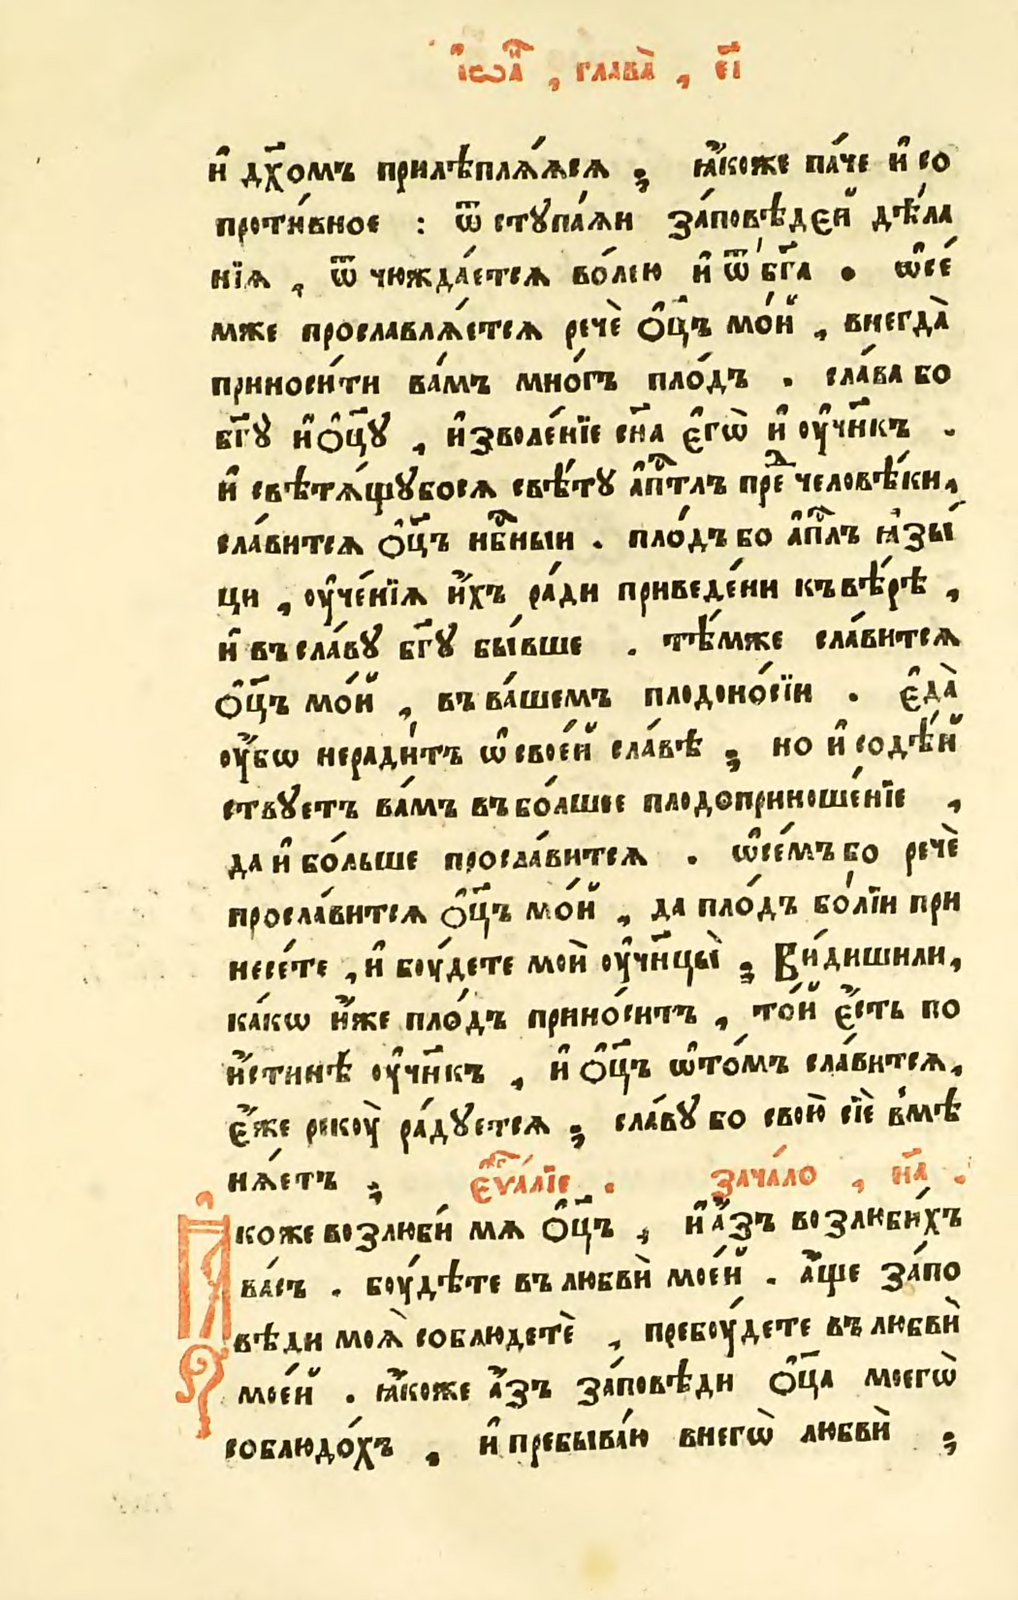 І҆ѡа́н , глава̀ , є҃і
и҆ дх҃омъ прилѣплѧ́ѧсѧ ; ꙗ҆́коже па́че и҆ со
проти́вное : ѿ ступа́ѧи за́повѣдей дѣ́ла
нїѧ , ѿ чюжда́етсѧ во́лею и҆ ѿ бг҃а . ѡ҆ се́
мже прославлѧ́етсѧ речѐ ѻ҆ц҃ъ мо́й , внегда̀
приноси́ти ва́мъ мно́гъ пло́дъ . сла́ва бо
бг҃ꙋ и҆ ѻ҆ц҃ꙋ , и҆зволе́нїе сн҃а є҆гѡ̀ и҆ ᲂу҆чн҃къ .
и҆ свѣтѧ́щꙋбосѧ свѣ́тꙋ а҆пⷭ҇тлъ преⷣ человѣ́ки,
сла́витсѧ ѻ҆ц҃ъ нбⷭ҇ныи . пло́дъ бо а҆пⷭ҇лъ ꙗ҆зы́
ци , ᲂу҆че́нїѧ и҆́хъ ра́ди приведе́ни къ вѣ́рѣ ,
и҆ въ сла́вꙋ бг҃ꙋ бы́вше . тѣ́мже сла́витсѧ
ѻ҆ц҃ъ мо́й , въ ва́шемъ плодоно́сїи . є҆да̀
ᲂу҆́бѡ неради́тъ ѡ҆ свое́й сла́вѣ ; но и҆ содѣ́й
ствꙋетъ ва́мъ въ бо́лшее плодоприноше́нїе ,
да и҆ бо́льше просла́витсѧ . ѡ҆ се́мъ бо речѐ
просла́витсѧ ѻ҆ц҃ъ мо́й , да пло́дъ бо́лїи при
несе́те , и҆ бᲂу́дете мои̑ ᲂу҆чн҃цы̀ ; Ви́дишили,
ка́кѡ и҆́же пло́дъ прино́ситъ , то́й є҆́сть по
и҆́стинѣ ᲂу҆чн҃къ , и҆ ѻ҆ц҃ъ ѡ҆ то́мъ сла́витсѧ,
є҆́же рекᲂу̀ ра́дꙋетсѧ ; сла́вꙋ бо свою̀ сїѐ вмѣ
нѧ́етъ ; є҆ѵⷢ҇а́лїе . зача́ло , н҃а .
Ꙗ҆коже возлюби́ мѧ ѻ҆ц҃ъ , и҆ а҆́зъ возлюби́хъ
ва́съ . бᲂу́дѣте въ любвѝ мое́й . а҆́ще за́по
вѣди моѧ̀ соблюдетѐ , пребᲂу́дете въ любвѝ
мое́й . ꙗ҆́коже а҆́зъ за́повѣди ѻ҆ц҃а моегѡ̀
соблюдо́хъ , и҆ пребыва́ю в негѡ̀ любвѝ ;